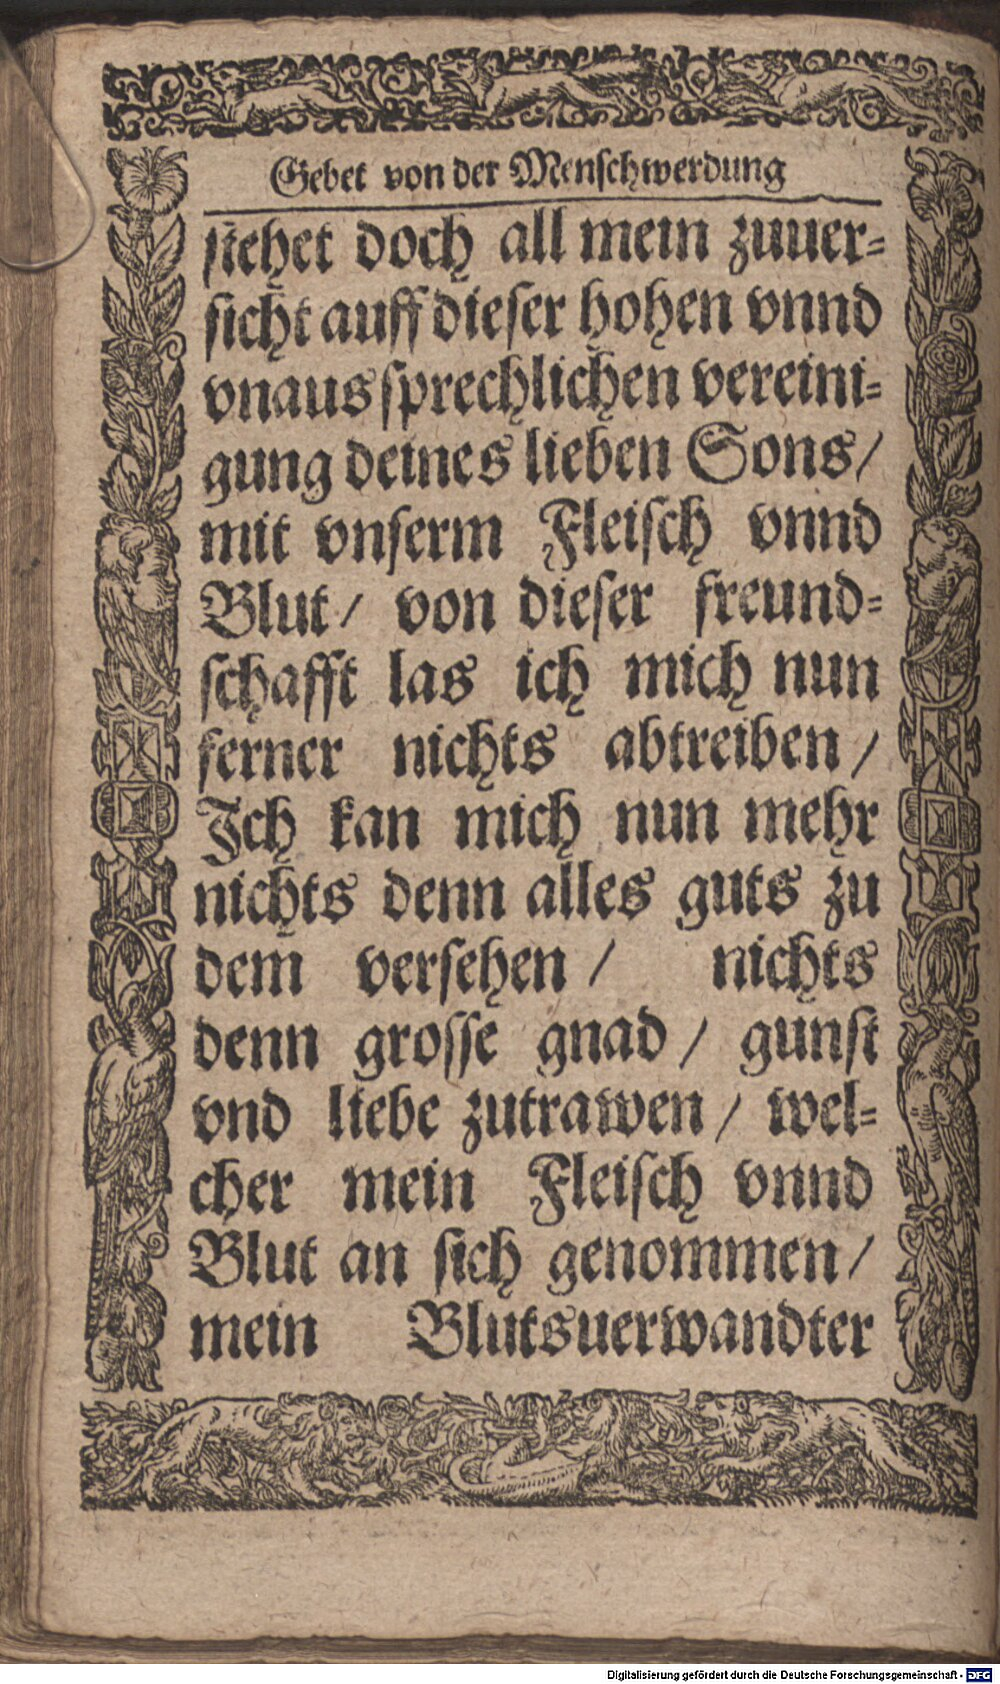 Gebet von der Menschwerdung
stehet doch all mein zuuer-
sicht auff dieser hohen vnnd
vnaussprechlichen vereini-
gung deines lieben Sons/
mit vnserm Fleisch vnnd
Blut/ von dieser freund-
schafft las ich mich nun
ferner nichts abtreiben/
Ich kan mich nun mehr
nichts denn alles guts zu
dem versehen/ nichts
denn grosse gnad/ gunst
vnd liebe zutrawen/ wel-
cher mein Fleisch vnnd
Blut an sich genommen/
mein Blutsuerwandter
Digitalisierung gefördert durch die Deutsche Forschungsgemeinschaft - DFG